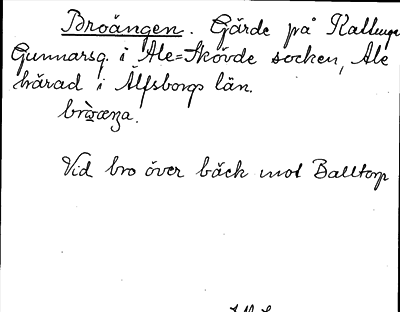 Broängen. Gärde på Kallunge
Gunnarsg. i Ale=Skövde socken, Ale
härad i Älfsborgs län.
Vid bro över bäck mot Balltorp